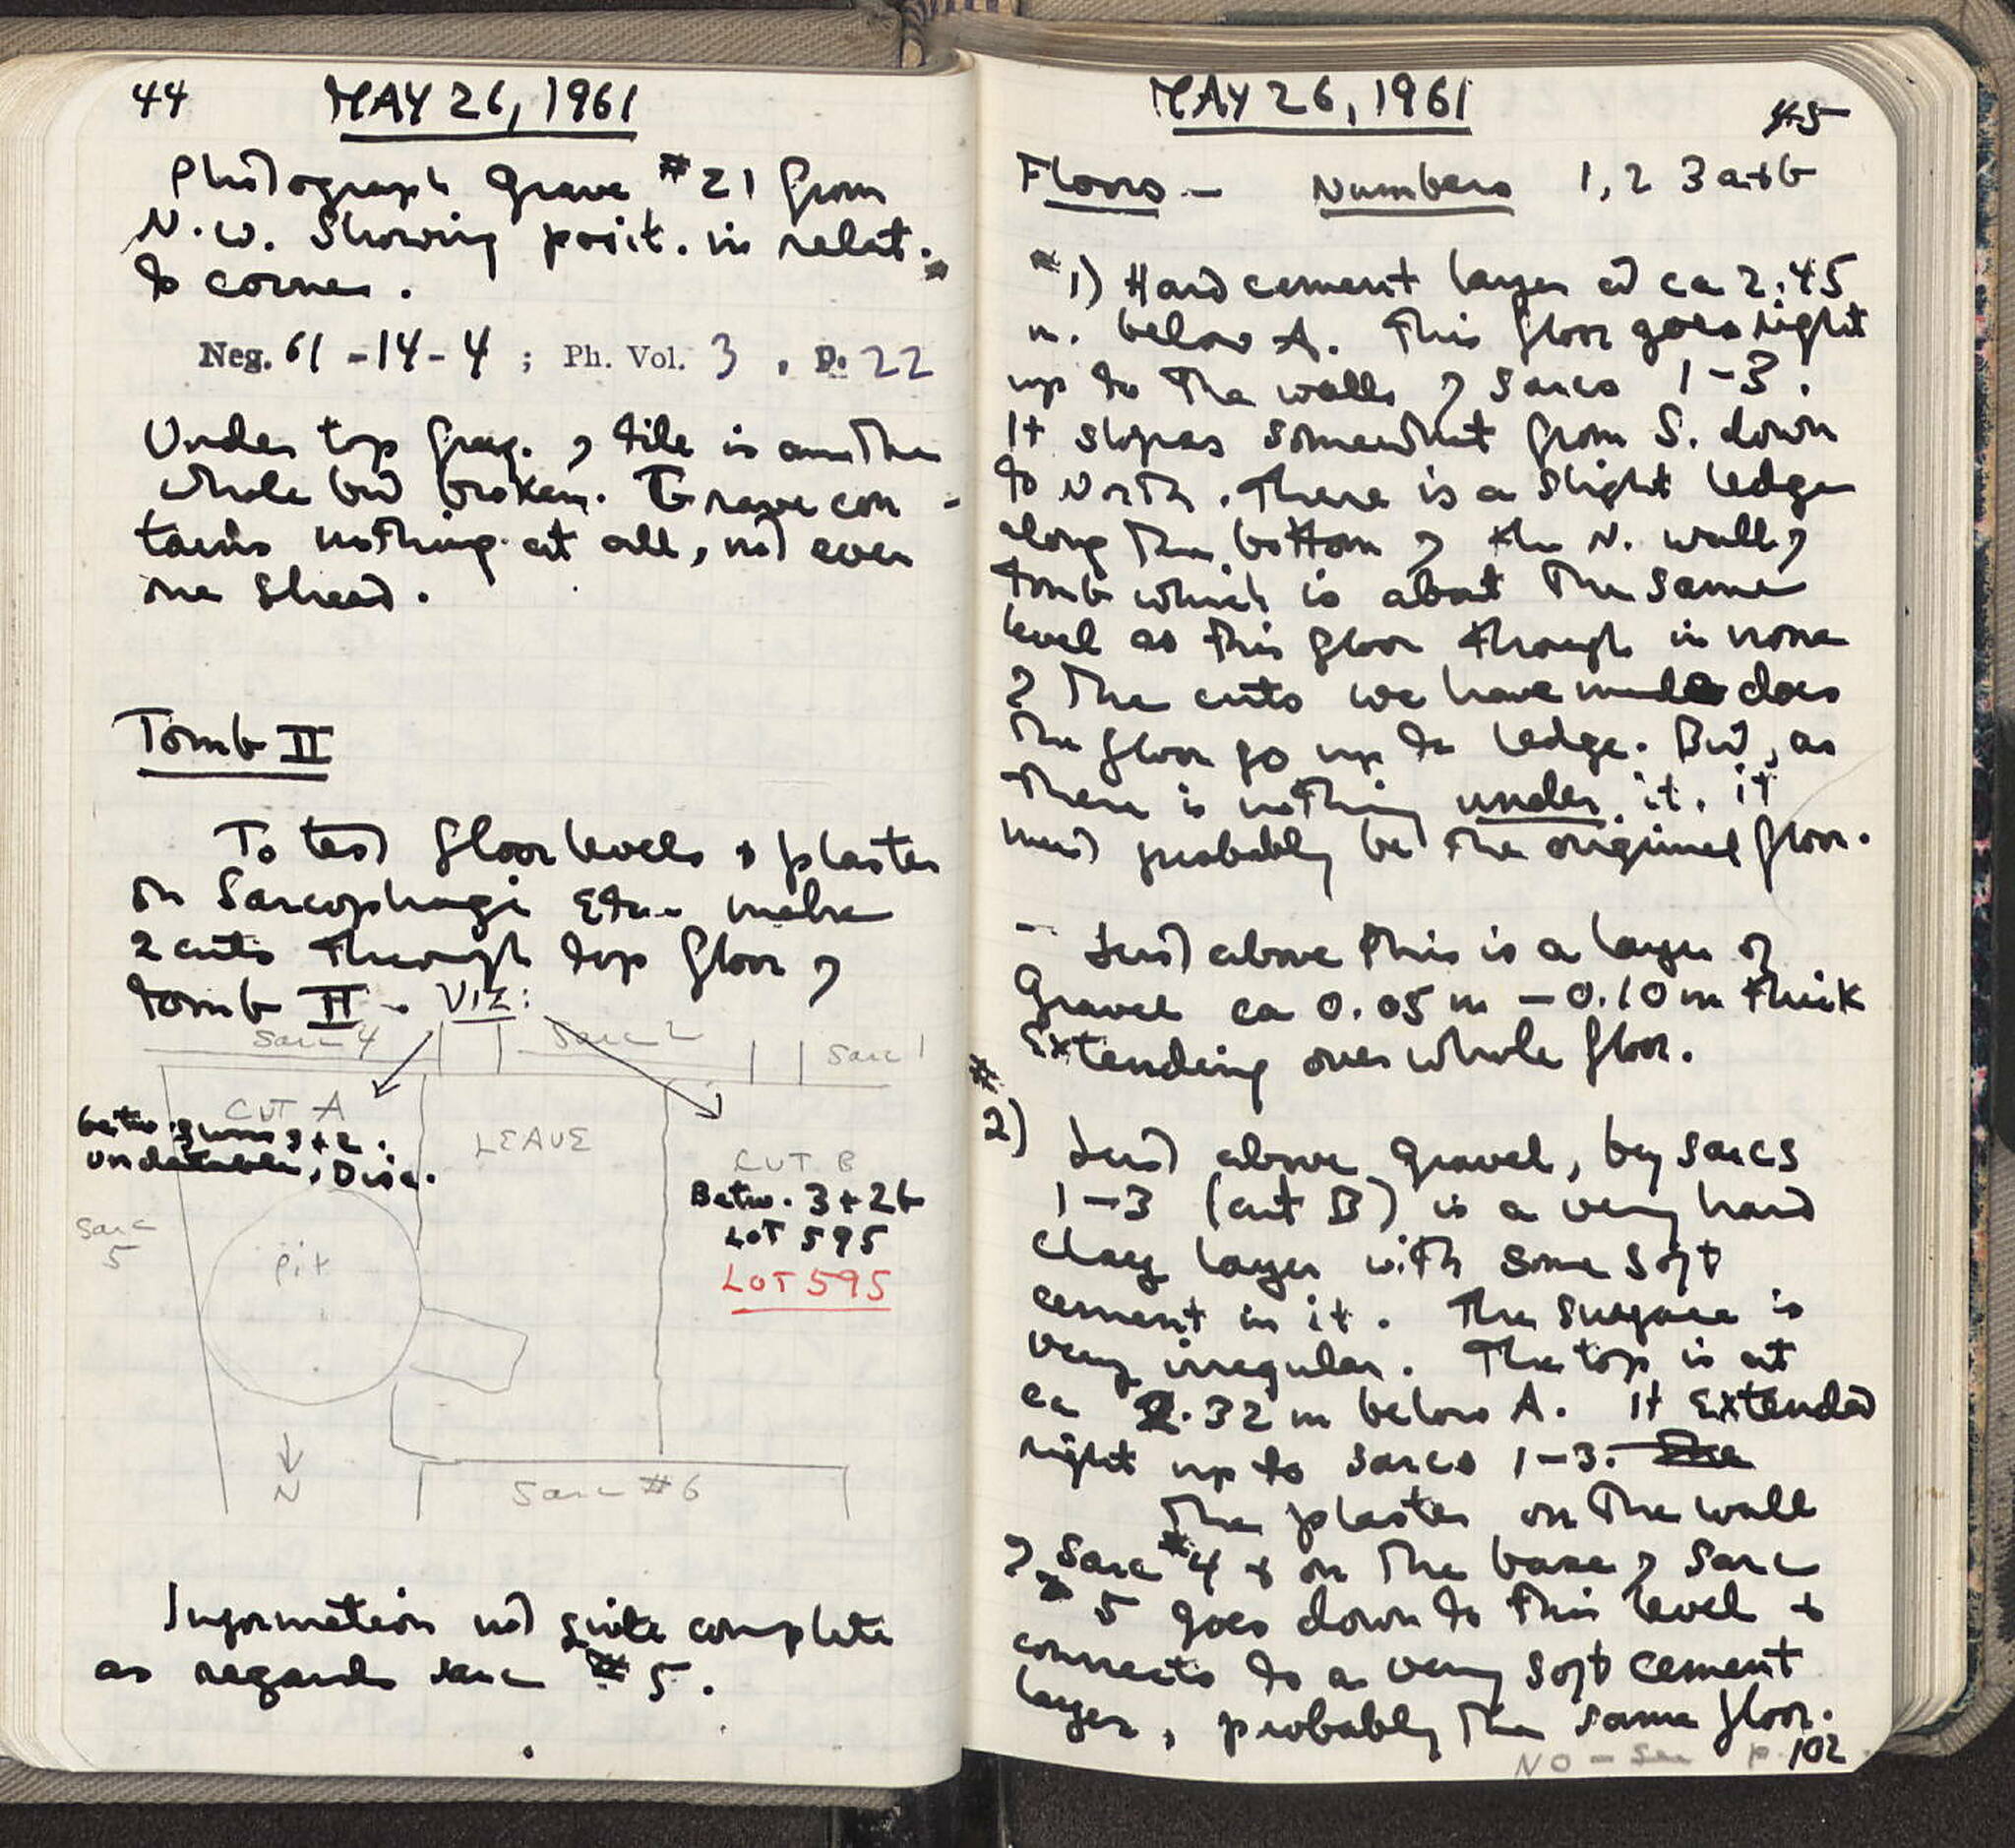 44 MAY 26, 1961
Photograph Grave #21 from
N.W. Showing posit. in relat.
to corner.
Neg. 61-14-4; Ph. Vol. 3, p. 22
Under top frag. of tile is another
whole but broken. Grave con-
tains nothing at all, not even
one sherd.
Tomb II
To test floor levels & plaster
on Sarcophagi Etc. make
2 cuts through top floor of
tomb II - VIZ:
Sarc 4 Sarc 2 Sarc 1
CUT A
betw. 3+2.
undatable, Disc.
LEAVE
CUT B
Betw. 3+2b
LOT 595
LOT 595
Sarc
5
Pit
N
Sarc #6
Information not quite complete
as regards sarc #5.
MAY 26, 1961 45
Floors - Numbers 1, 2 3a+b
#1) Hard cement layer at ca 2.45
m. below A. This floor goes right
up to the walls of Sarcs 1-3.
It slopes somewhat from S. down
to North. There is a slight ledge
along the bottom of the N. wall of
tomb which is about the same
level as this floor though in none
of the cuts we have made does
the floor go up to ledge. But, as
there is nothing under it, it
must probably be the original floor.
- Just above this is a layer of
Gravel ca 0.05 m - 0.10 m thick
Extending over whole floor.
#
2) Just above gravel, by sarcs
1-3 (cut B) is a very hard
clay layer with some soft
cement in it. The surface is
very irregular. The top is at
ca 2.32 m below A. It Extended
right up to sarcs 1-3. The
The plaster on the wall
of Sarc #4 & on the base of Sarc
#5 goes down to this level &
connects to a very soft cement
layer, probably the same floor.
NO - See p. 102